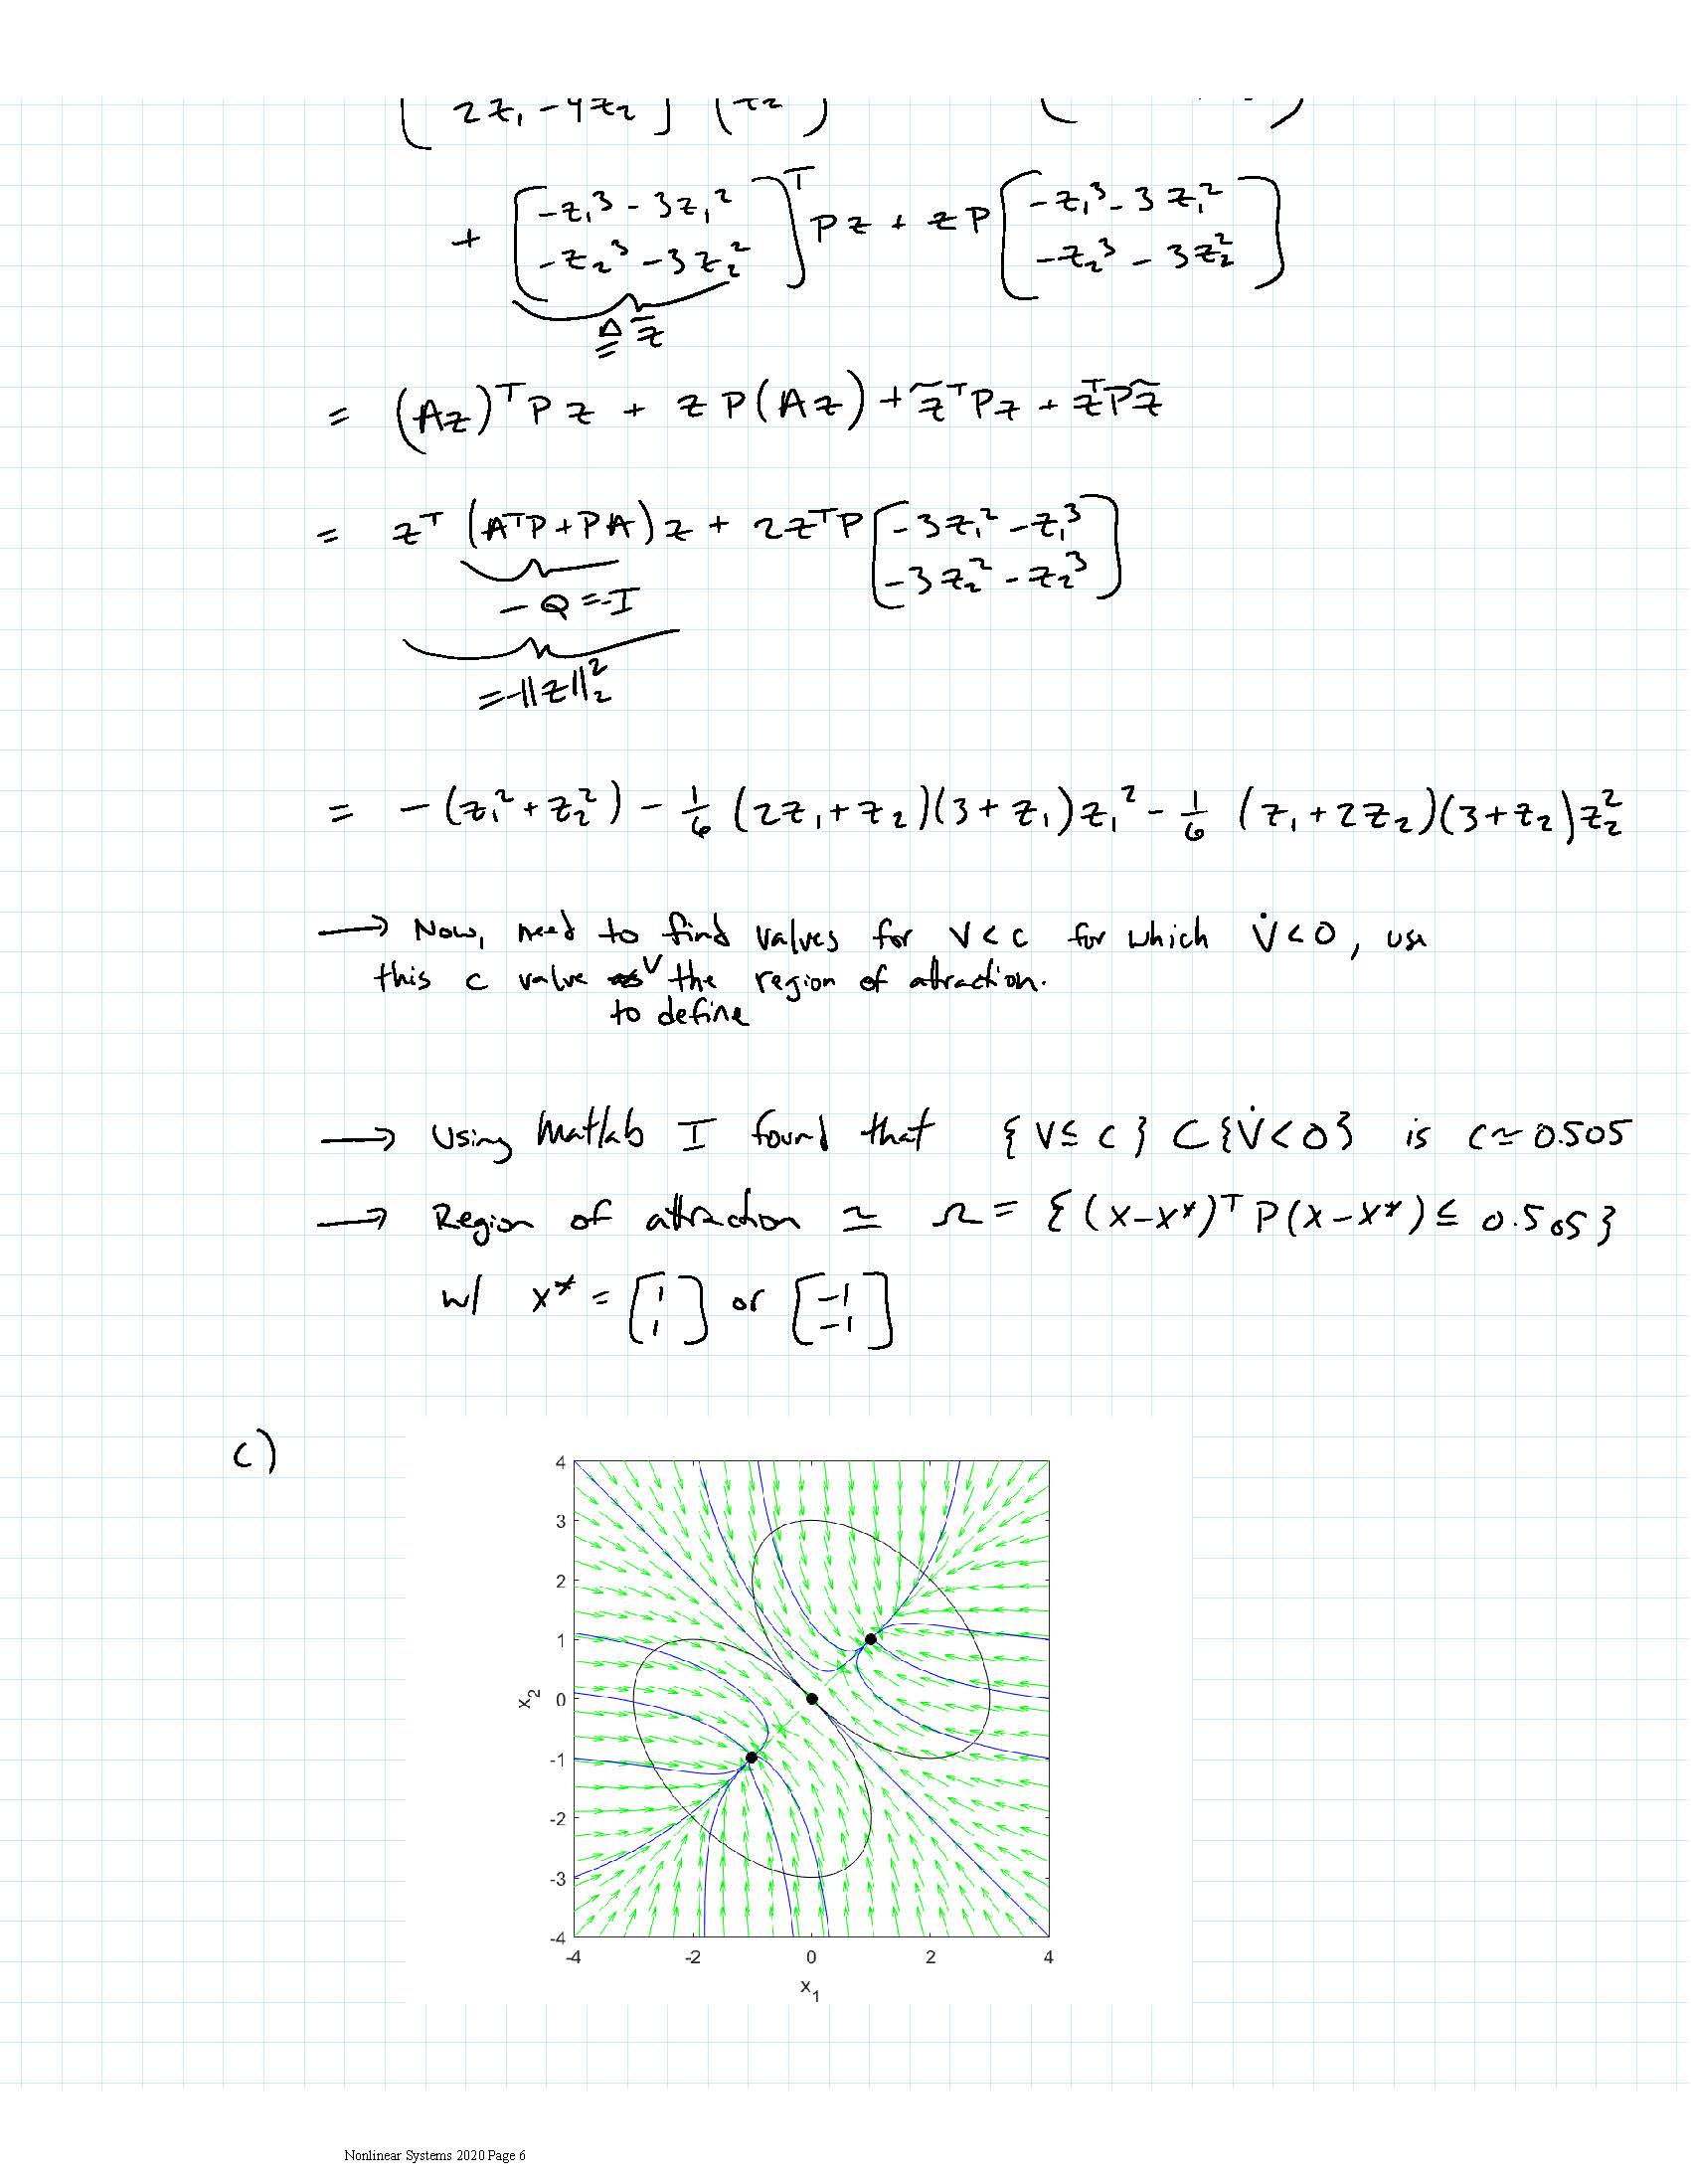 2z₁ - 4z₂ ] (z₂)
+ [-z₁³ - 3z₁²; -z₂³ - 3z₂²]ᵀ Pz + zP [-z₁³ - 3z₁²; -z₂³ - 3z₂²]
≜ z̃
= (Az)ᵀPz + zP(Az) + z̃ᵀPz + zᵀPz̃
= zᵀ(AᵀP+PA)z + 2zᵀP [-3z₁² - z₁³; -3z₂² - z₂³]
-Q=-I
=-||z||₂²
= -(z₁²+z₂²) - 1/6 (2z₁+z₂)(3+z₁)z₁² - 1/6 (z₁+2z₂)(3+z₂)z₂²
→ Now, need to find values for V<c for which V̇<0, use
this c value to define the region of attraction.
→ Using Matlab I found that {V≤c} ⊂ {V̇<0} is c≃0.505
→ Region of attraction ≃ Ω = {(x-x*)ᵀP(x-x*) ≤ 0.505}
w/ x* = [1; 1] or [-1; -1]
c)
4
3
2
1
0
-1
-2
-3
-4
x₂
-4 -2 0 2 4
x₁
Nonlinear Systems 2020 Page 6